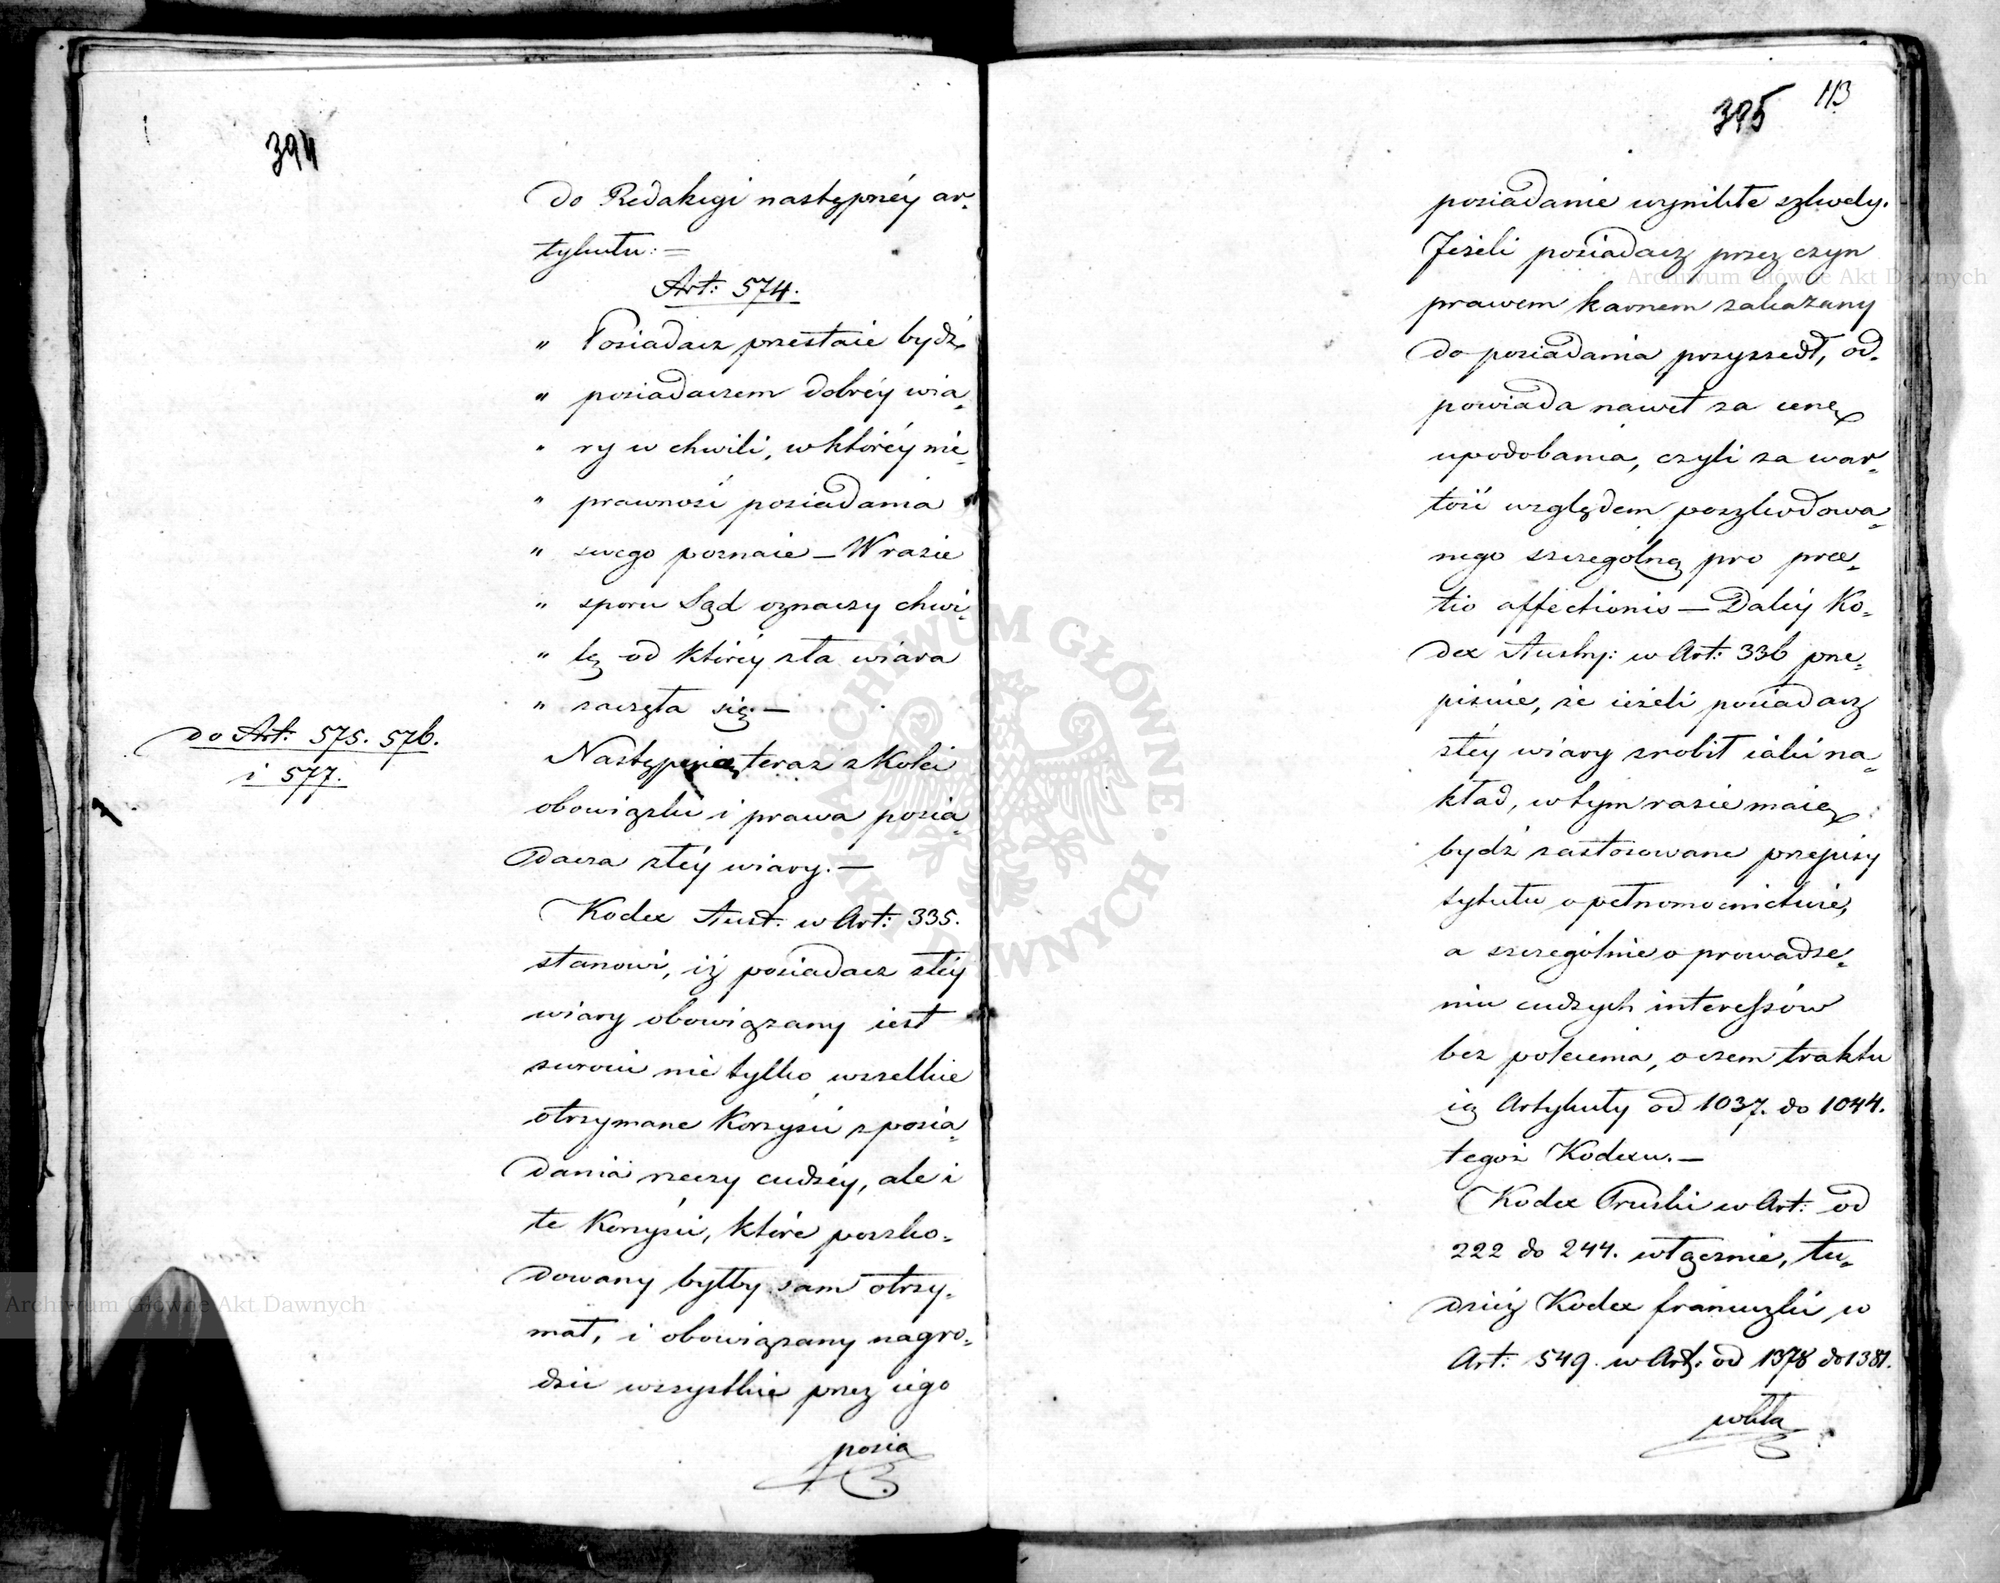 394
do Redakcyi następnéy ar-
tykułu: =
Art: 574.
„ Posiadacz przestaie bydź
„ posiadaczem dobréy wia-
„ ry w chwili, w któréy nie-
„ prawność posiadania
„ swego poznaie — W razie
„ sporu Sąd oznaczy chwi-
„ lę od któréy zła wiara
„ zaczęła się. —
do Art: 575. 576.
i 577.
Następuią teraz z kolei
obowiązki i prawa posia-
dacza złéy wiary. —
Kodex Aust: w Art: 335.
stanowi, iż posiadacz złéy
wiary obowiązany iest
zwrócić nie tylko wszelkie
otrzymane korzyści z posia-
dania rzeczy cudzéy, ale i
te korzyści, które poszko-
dowany byłby sam otrzy-
mał, i obowiązany nagro-
dzić wszystkie przez iego
posia
395 113
posiadanie wynikłe szkody.
Jeżeli posiadacz przez czyn
prawem karnem zakazany
do posiadania przyszedł, od-
powiada nawet za cenę
upodobania, czyli za war-
tość względem poszkodowa-
nego szczególną pro prae-
tio affectionis — Daléy Ko-
dex Austry: w Art: 336 prze-
pisuie, że ieżeli posiadacz
złéy wiary zrobił iaki na-
kład, w tym razie maią
bydź zastosowane przepisy
tytułu o pełnomocnictwie,
a szczególnie o prowadze-
niu cudzych interessów
bez polecenia, o czem traktu
ią Artykuły od 1037. do 1044.
tegoż Kodexu. —
Kodex Pruski w Art: od
222 do 244. włącznie, tu-
dzież Kodex francuzki w
Art: 549. w Art: od 1378 do 1381.
wkła
Archiwum Główne Akt Dawnych
Archiwum Główne Akt Dawnych
ARCHIWUM GŁÓWNE AKT DAWNYCH